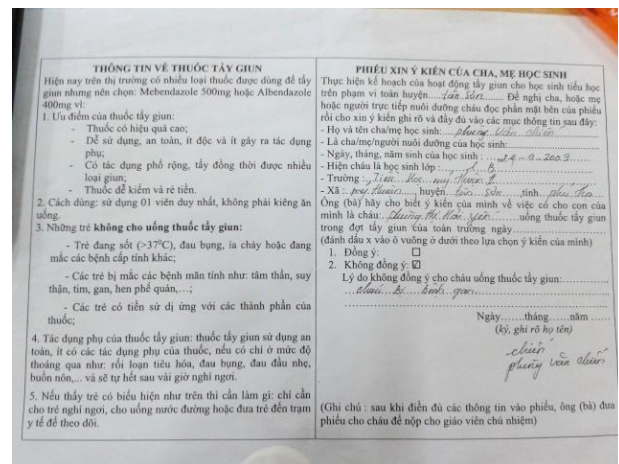 THÔNG TIN VỀ THUỐC TẨY GIUN
Hiện nay trên thị trường có nhiều loại thuốc được dùng để tẩy
giun nhưng nên chọn: Mebendazole 500mg hoặc Albendazole
400mg vì:
1. Ưu điểm của thuốc tẩy giun:
- Thuốc có hiệu quả cao;
- Dễ sử dụng, an toàn, ít độc và ít gây ra tác dụng
phụ;
- Có tác dụng phổ rộng, tẩy đồng thời được nhiều
loại giun;
- Thuốc dễ kiếm và rẻ tiền.
2. Cách dùng: sử dụng 01 viên duy nhất, không phải kiêng ăn
uống.
3. Những trẻ không cho uống thuốc tẩy giun:
- Trẻ đang sốt (>37°C), đau bụng, ỉa chảy hoặc đang
mắc các bệnh cấp tính khác;
- Các trẻ bị mắc các bệnh mãn tính như: tâm thần, suy
thận, tim, gan, hen phế quản,…;
- Các trẻ có tiền sử dị ứng với các thành phần của
thuốc;
4. Tác dụng phụ của thuốc tẩy giun: thuốc tẩy giun sử dụng an
toàn, ít có các tác dụng phụ của thuốc, nếu có chỉ ở mức độ
thoáng qua như: rối loạn tiêu hóa, đau bụng, đau đầu nhẹ,
buồn nôn,... và sẽ tự hết sau vài giờ nghỉ ngơi.
5. Nếu thấy trẻ có biểu hiện như trên thì cần làm gì: chỉ cần
cho trẻ nghỉ ngơi, cho uống nước đường hoặc đưa trẻ đến trạm
y tế để theo dõi.
PHIẾU XIN Ý KIẾN CỦA CHA, MẸ HỌC SINH
Thực hiện kế hoạch của hoạt động tẩy giun cho học sinh tiểu học
trên phạm vi toàn huyện Tân Sơn. Đề nghị cha, hoặc mẹ
hoặc người trực tiếp nuôi dưỡng cháu đọc phần mặt bên của phiếu
rồi cho xin ý kiến ghi rõ và đầy đủ vào các mục thông tin sau đây:
- Họ và tên cha/mẹ học sinh: phùng văn chiến
- Là cha/mẹ/người nuôi dưỡng của học sinh:
- Ngày, tháng, năm sinh của học sinh:
- Hiện cháu là học sinh lớp: B
- Trường: Tiểu Học mỹ thuận
- Xã: mỹ thuận huyện tân sơn tỉnh phú thọ
Ông (bà) hãy cho biết ý kiến của mình về việc có cho con của
mình là cháu: phùng thị yến uống thuốc tẩy giun
trong đợt tẩy giun của toàn trường ngày
(đánh dấu x vào ô vuông ở dưới theo lựa chọn ý kiến của mình)
1. Đồng ý: ☐
2. Không đồng ý: ☑
Lý do không đồng ý cho cháu uống thuốc tẩy giun:
cháu Bị bệnh gan
Ngày......tháng......năm......
(ký, ghi rõ họ tên)
chiến
phùng văn chiến
(Ghi chú : sau khi điền đủ các thông tin vào phiếu, ông (bà) đưa
phiếu cho cháu để nộp cho giáo viên chủ nhiệm)